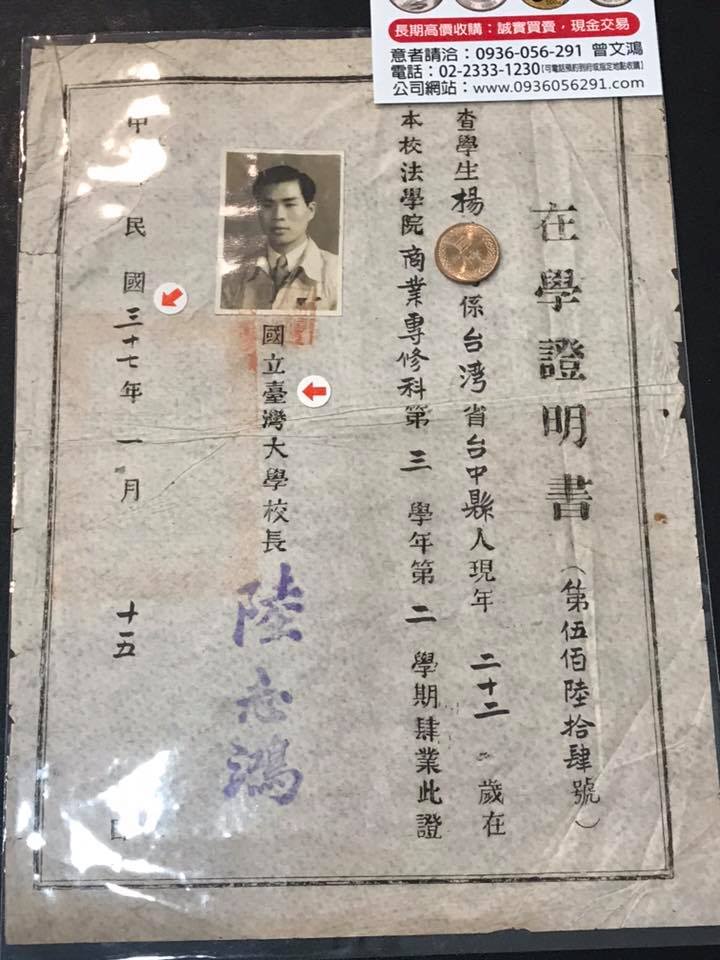 長期高價收購：誠實買賣，現金交易
意者請洽：0936-056-291 曾文鴻
電話：02-2333-1230【可電話預約到府或指定地點收購】
公司網站：www.0936056291.com
在學證明書（第伍佰陸拾肆號）
查學生楊 係台湾省台中縣人現年二十二歲在
本校法學院商業專修科第三學年第二學期肄業此證
國立臺灣大學校長 陸志鴻
中 民國三十七年一月十五日